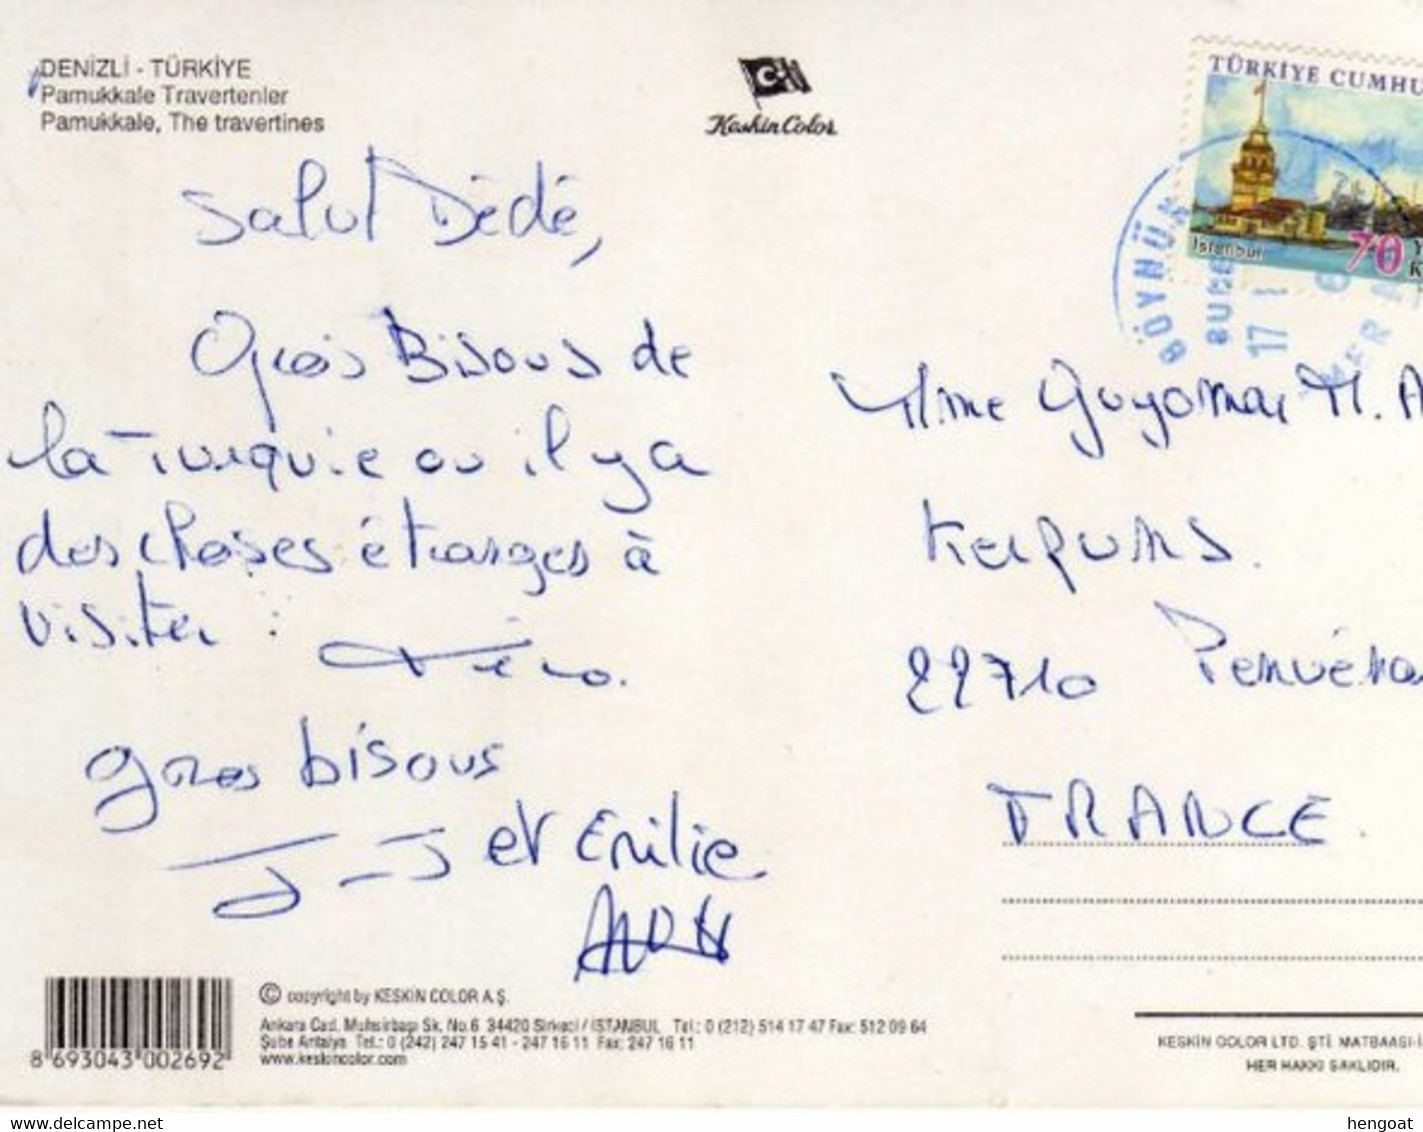 DENİZLİ - TÜRKİYE
Pamukkale Travertenler
Pamukkale, The travertines
Keskin Color
TÜRKİYE CUMHU
Istanbul
70
17
Salut Dédé,
Gros Bisous de
la Turquie ou il y a
des choses étranges à
visiter :
gros bisous
J-J et Emilie
Mme Guyomar M. A
22710 Penvénan
FRANCE.
8 693043 002692
© copyright by KESKİN COLOR A.Ş.
Ankara Cad. Muhsirbaşı Sk. No.6 34420 Sirkeci / İSTANBUL Tel.: 0 (212) 514 17 47 Fax: 512 09 64
Şube Antalya Tel.: 0 (242) 247 15 41 - 247 16 11 Fax: 247 16 11
www.keskincolor.com
KESKİN COLOR LTD. ŞTİ. MATBAASI-İ
HER HAKKI SAKLIDIR.
www.delcampe.net
hengoat